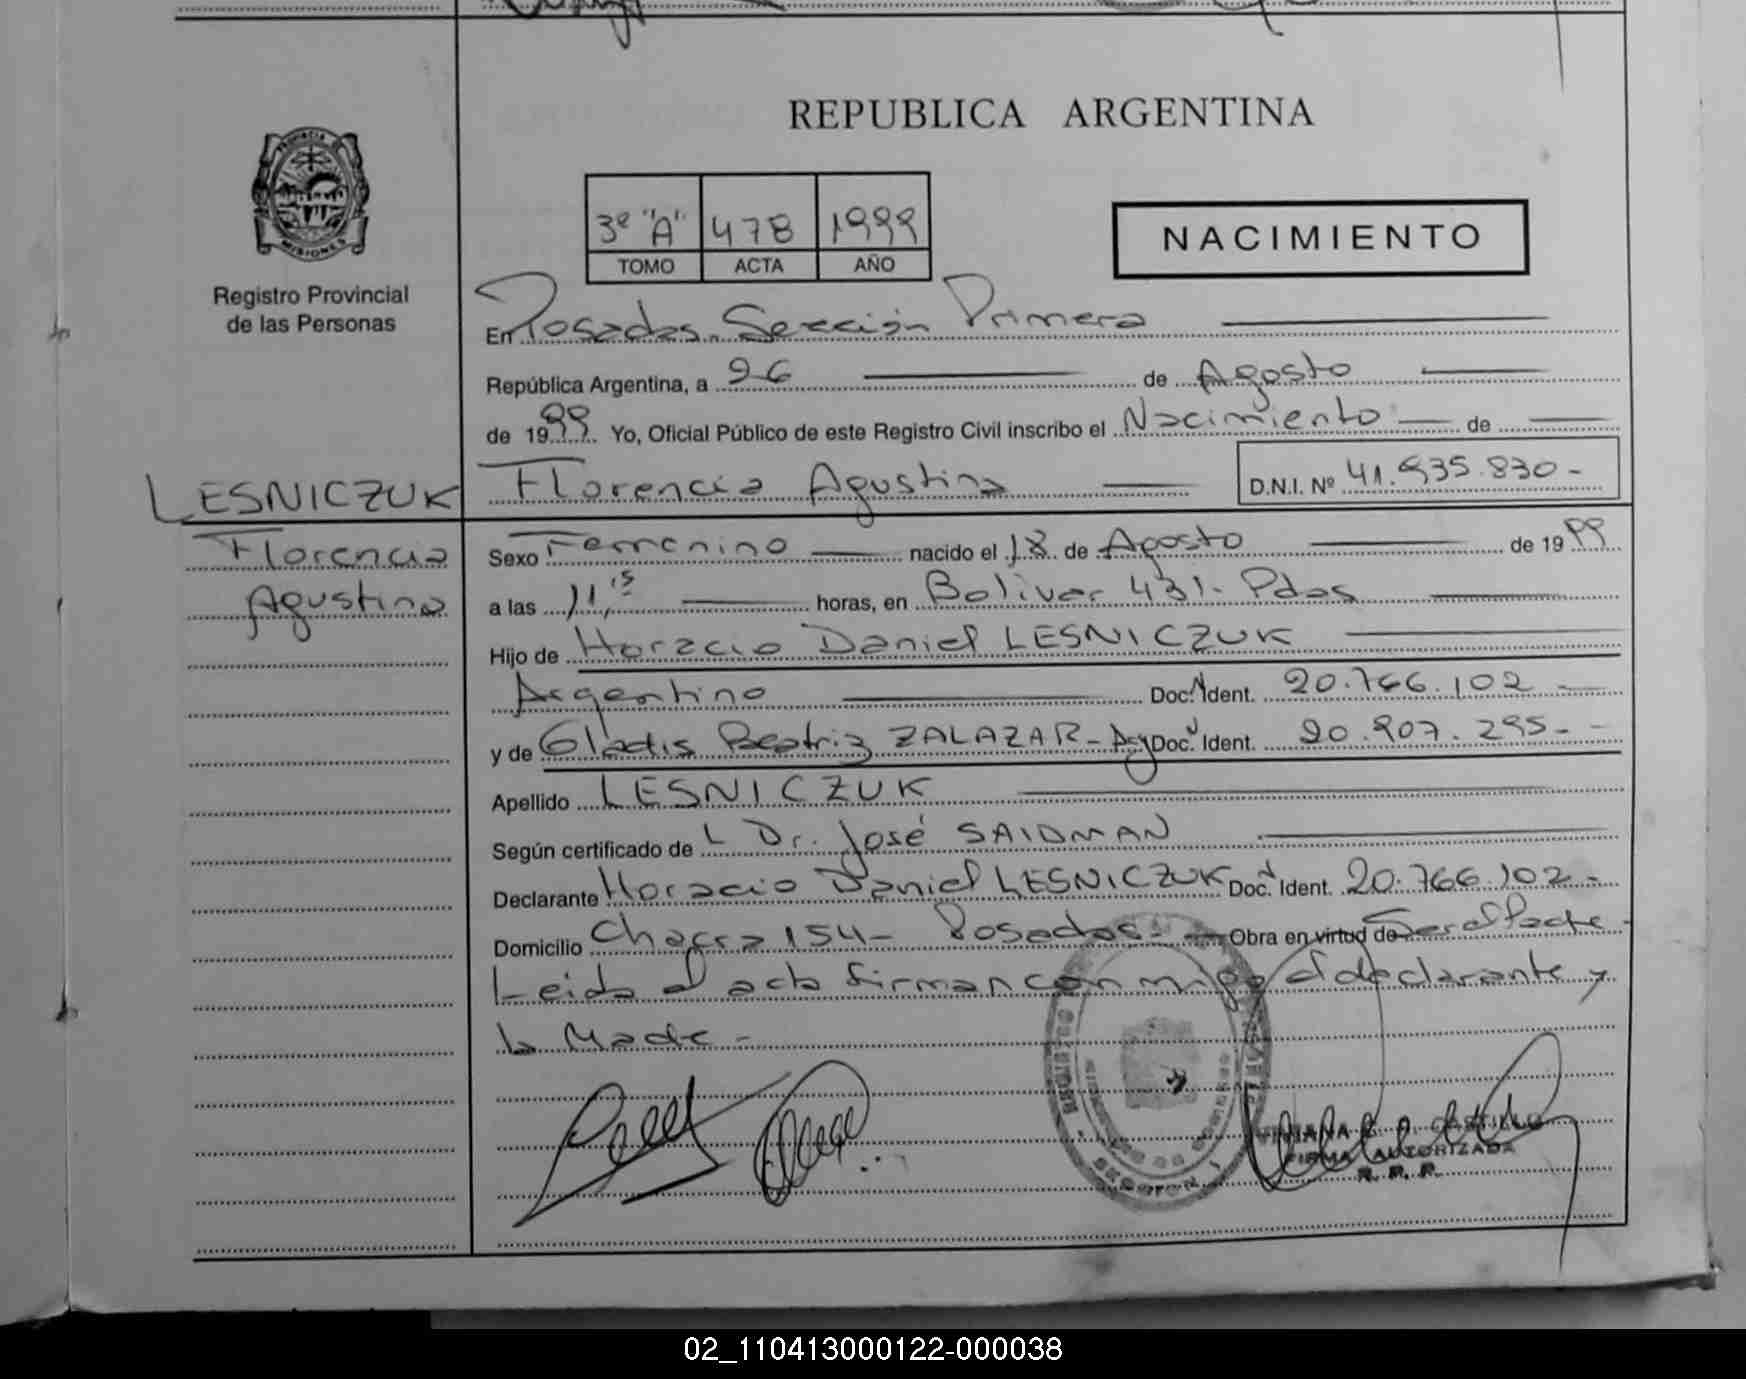 REPUBLICA ARGENTINA
PROVINCIA D
MISIONES
Registro Provincial
de las Personas
3º "A" 478 1999
TOMO ACTA AÑO
NACIMIENTO
En Posadas. Sección Primera
República Argentina, a 26 de Agosto
de 1999 Yo, Oficial Público de este Registro Civil inscribo el Nacimiento de
LESNICZUK
Florencia Agustina
D.N.I. Nº 41.935.830-
Florencia
Agustina
Sexo Femenino nacido el 18 de Agosto de 1999
a las 11,15 horas, en Bolivar 431- Pdas
Hijo de Horacio Daniel LESNICZUK
Argentino Doc. Ident. 20.766.102
y de Gladis Beatriz ZALAZAR- Arg Doc. Ident. 20.907.295-
Apellido LESNICZUK
Según certificado de L Dr. José SAIDMAN
Declarante Horacio Daniel LESNICZUK Doc. Ident. 20.766.102-
Domicilio Chacra 154- Posadas- Obra en virtud de Ser el Padre-
Leida el acta firman conmigo el declarante y
la Madre-
CASTILLO
FIRMA AUTORIZADA
R. P. P.
02_110413000122-000038